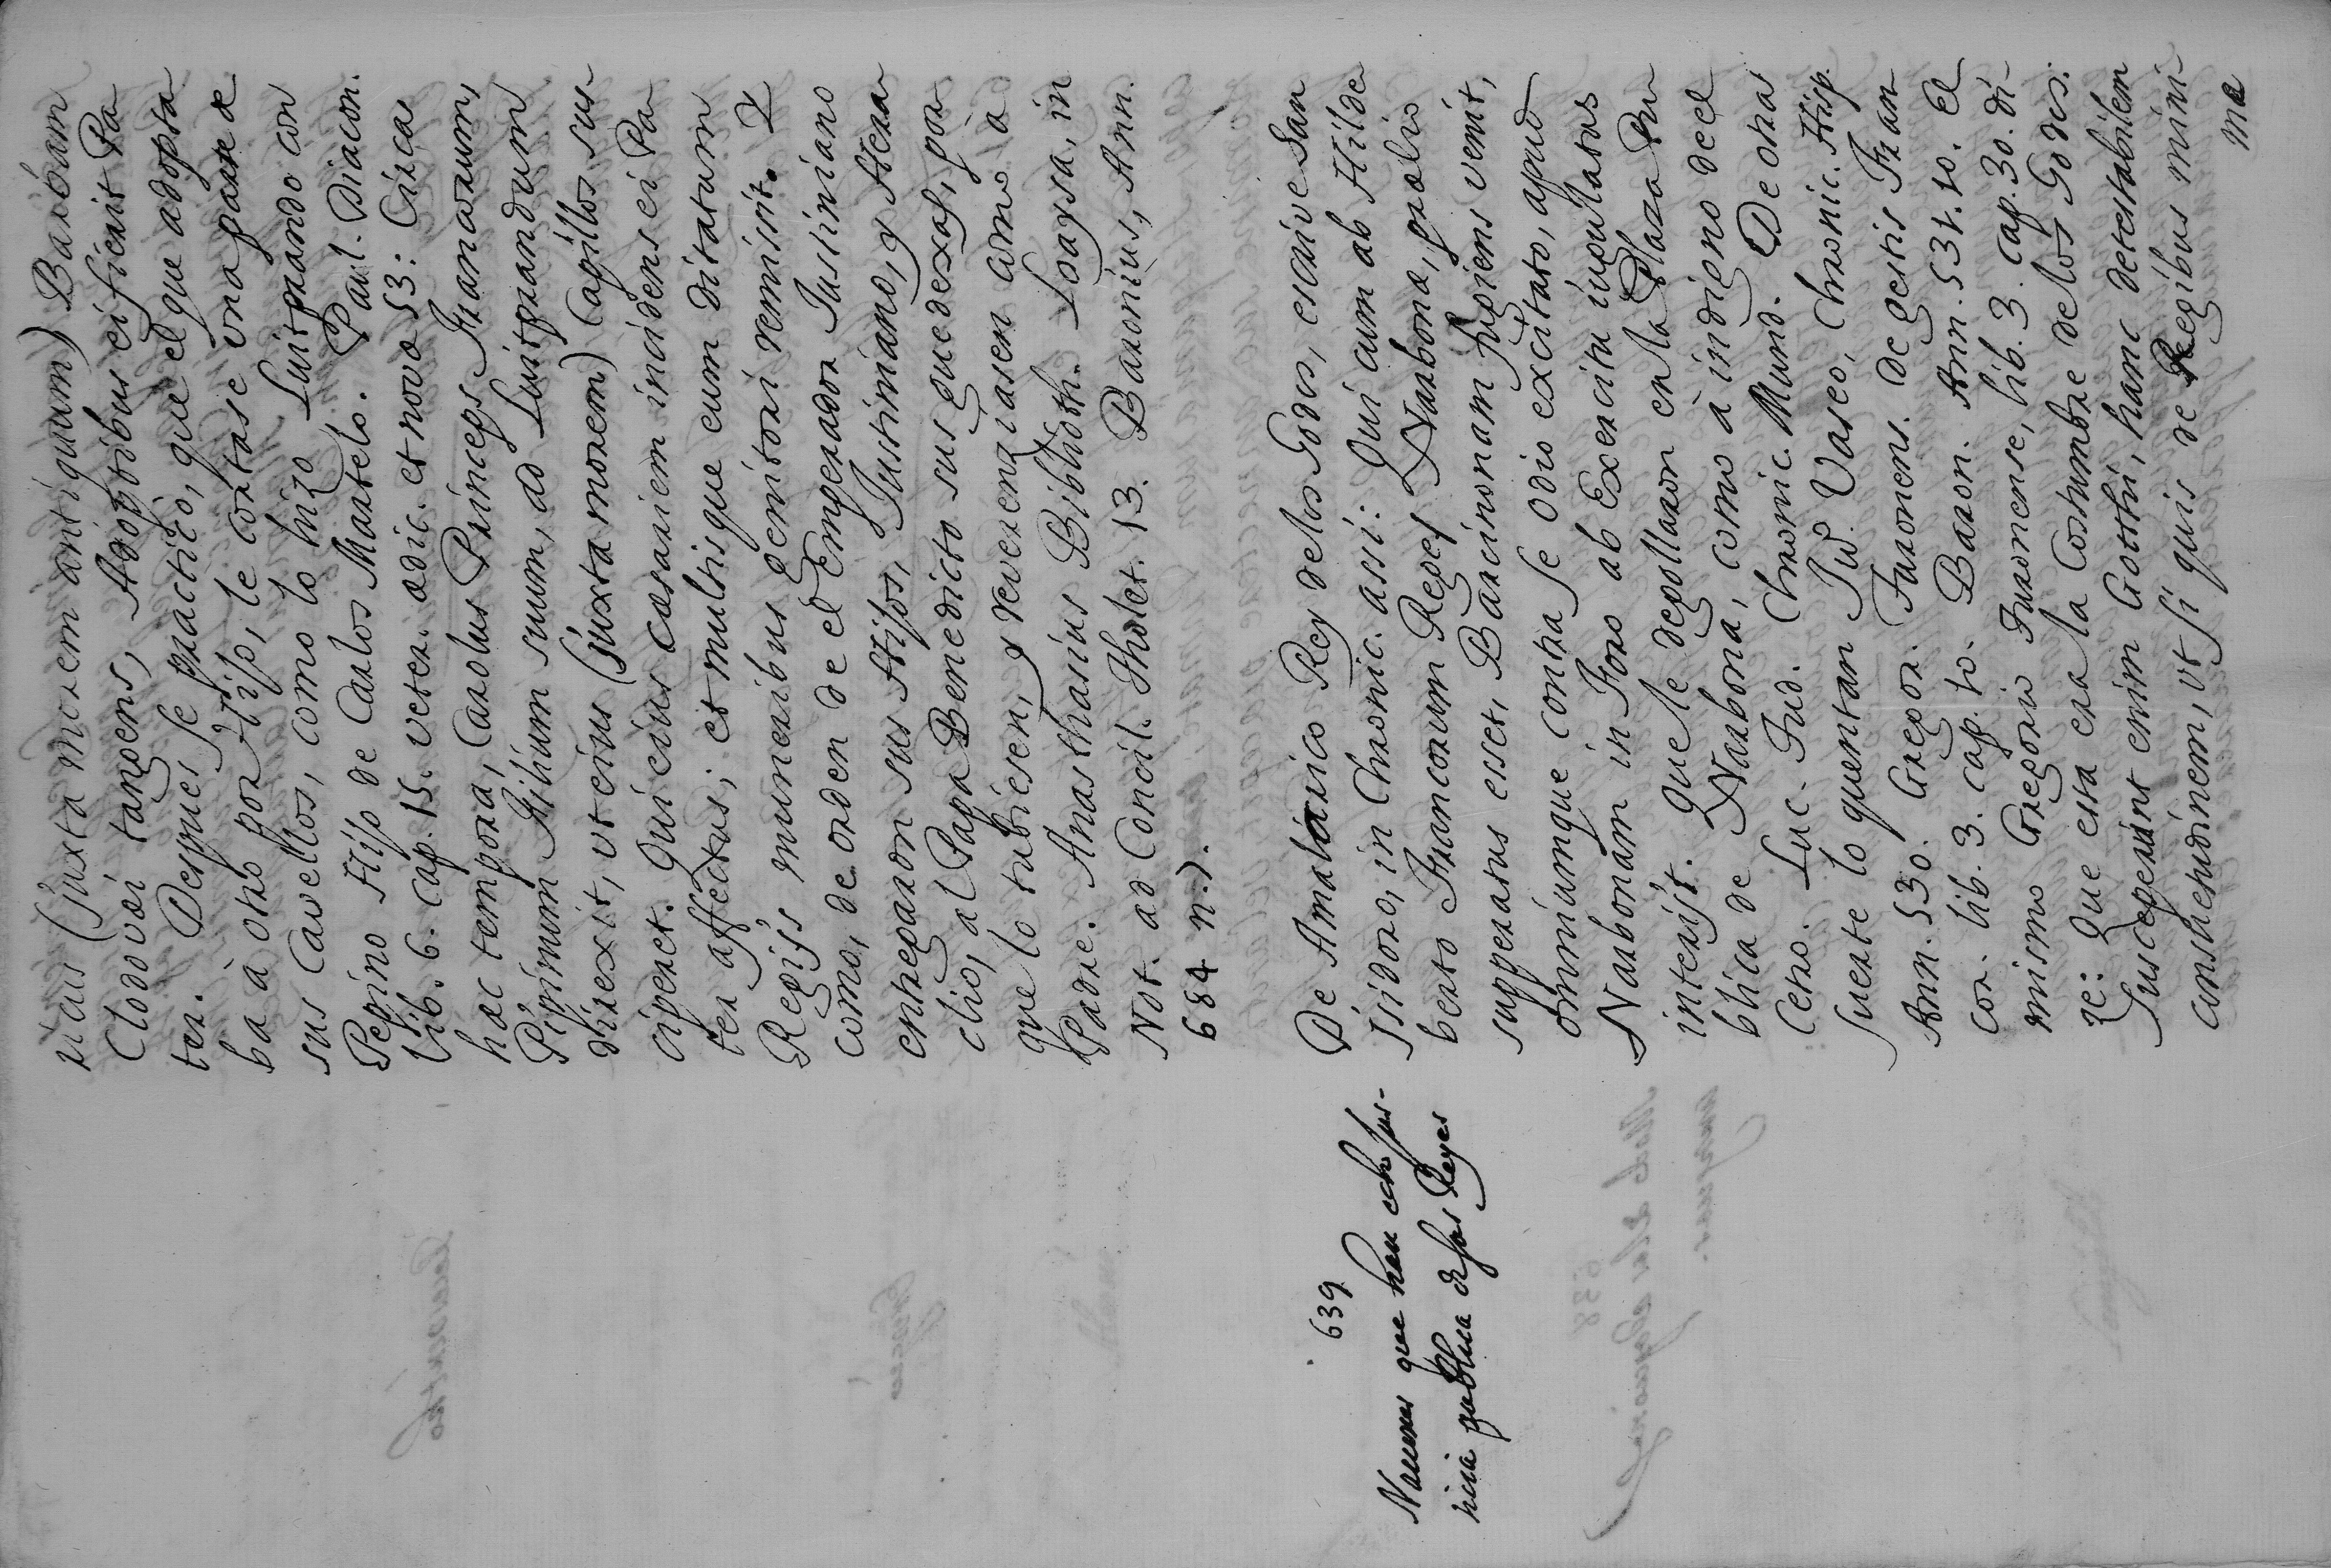 ricus (juxta morem antiquum) Barbam
Clodovæi tangens, Adoptibus ei ficerit Pa
ter. Despues se practicò, que el que adopta
ba à otro por Hijo, le cortase una parte de
sus Cavellos, como lo hizo Luitprando con
Pepino Hijo de Carlos Martelo. Paul. Diacon.
lib. 6. cap. 15. veter. ædic. et nova 53: Circa
hac tempora, Carolus Princeps Francorum,
Pipinum filium suum, ad Luitprandum
direxit, ut eius (juxta morem) Capillos sus
ciperet. Qui eius cæsariem incidens ei Pa
ter affectus; et multisque eum ditatum
Regiis muneribus genitori remisit. Y
como, de orden de el Emperador Justiniano
entregaron sus Hijos, Justiniano, y Hera
clio, al Papa Benedicto sus guedexas, por
que lo tubiesen, y reverenziasen como à
Padre. Anasthasius Biblioth. Loaysa, in
Not. ad Concil. Tholet. 13. Baronius, Ann.
684 n.).
639
Nauenas que han echo jus-
ticia publica de sus Reyes
De Amalarico Rey de los Godos, escrive San
Isidoro, in Chronic. assi: Qui cum ab Hilde
berto Francorum Reges Narbona, prælio
supperatus esset, Barcinonam fugiens venit,
omniumque contra se odio excitato, apud
Narbonam in Foro ab Exercitu iugulatus
interijt. Que le degollaron en la Plaza Pu
blica de Narbona, como à indigno de el
Cetro. Luc. Tud. Chronic. Mund. De otra
suerte lo quentan Jud. Vaseo, Chronic. Hisp.
Ann. 530. Gregor. Turonens. de gestis Fran
cor. lib. 3. cap. 10. Baron. Ann. 531. 10. El
mismo Gregorio Turonense, lib. 3. cap. 30. di
ze: Que esta era la Costumbre de los Godos:
Susceperunt enim Gotthi, hanc detestabilem
consuetudinem, ut si quis de Regibus mini
me